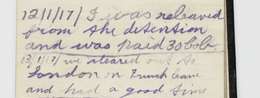 12/1/17/ I was released
from the detention
and was paid 30 bob.
13/1/17/ we cleared out to
London on French leave
and had a good time